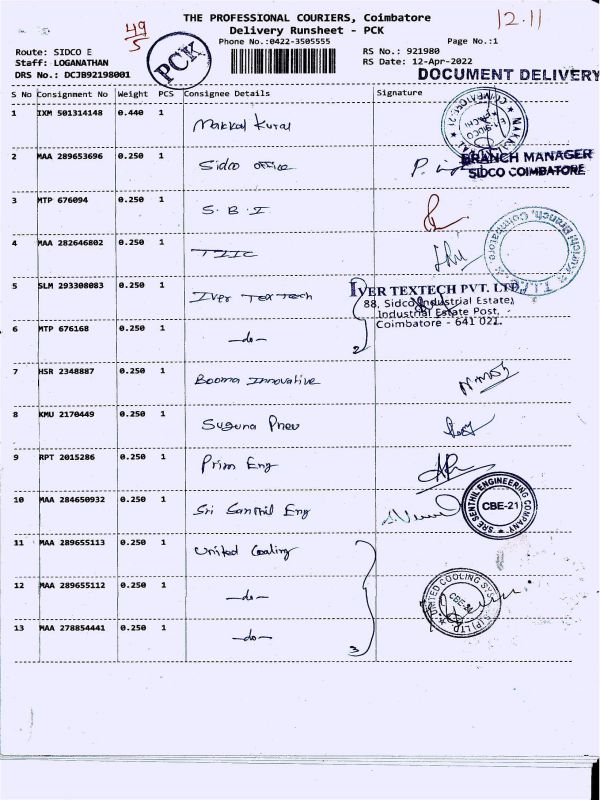 THE PROFESSIONAL COURIERS, Coimbatore
12.11
49/5
Delivery Runsheet - PCK
Phone No.:0422-3505555
Page No.:1
Route: SIDCO E
PCK
RS No.: 921980
Staff: LOGANATHAN
RS Date: 12-Apr-2022
DRS No.: DCJB92198001
DOCUMENT DELIVERY
S No Consignment No Weight PCS Consignee Details Signature
1 IXM 501314148 0.440 1 Makkal Kural
2 MAA 289653696 0.250 1 Sidco office
BRANCH MANAGER
SIDCO COIMBATORE
3 MTP 676094 0.250 1 S.B.I
4 MAA 282646802 0.250 1 TIIC
5 SLM 293308083 0.250 1 Iver Tex Tech
IVER TEXTECH PVT. LTD,
88, Sidco Industrial Estate,
Industrial Estate Post,
Coimbatore - 641 021.
6 MTP 676168 0.250 1 -do- 2
7 HSR 2348887 0.250 1 Booma Innovative
8 KMU 2170449 0.250 1 Suguna Pneu
9 RPT 2015286 0.250 1 Prim Eng
10 MAA 284650932 0.250 1 Sri Senthil Eng
SRE SENTHIL ENGINEERING COMPANY
CBE-21
11 MAA 289655113 0.250 1 United Cooling
12 MAA 289655112 0.250 1 -do-
UNITED COOLING SYS
(P) LTD.
13 MAA 278854441 0.250 1 -do- 3